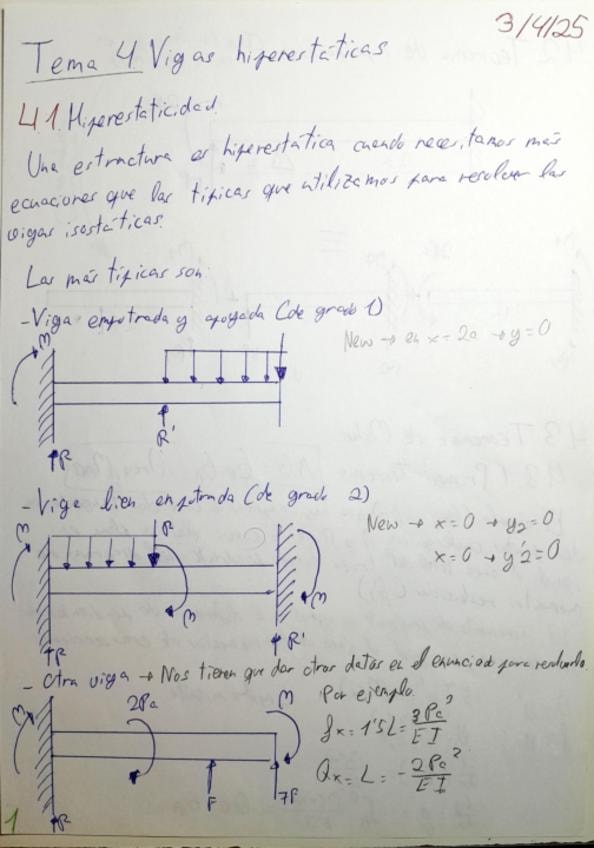 3/4/25
Tema 4. Vigas hiperestáticas
4.1. Hiperestaticidad.
Una estructura es hiperestática cuando necesitamos más
ecuaciones que las típicas que utilizamos para resolver las
vigas isostáticas.
Las más típicas son:
- Viga empotrada y apoyada (de grado 1)
New → en x = 2a → y = 0
M
R'
R
- Viga bien empotrada (de grado 2)
New → x = 0 → y2 = 0
x = 0 → y'2 = 0
M
P
M
M
R
R'
- Otra viga → Nos tienen que dar otros datos en el enunciado para resolverlo.
Por ejemplo.
M
2Pa
M
fx = 1'5L = 3Pa³/EI
Qx = L = -2Pa²/EI
F
7P
R
1